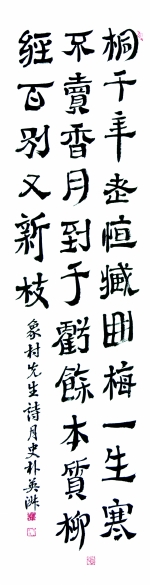 桐千年老恒藏曲梅一生寒
不賣香月到千虧餘本質柳
經百別又新枝
象村先生詩月史朴英